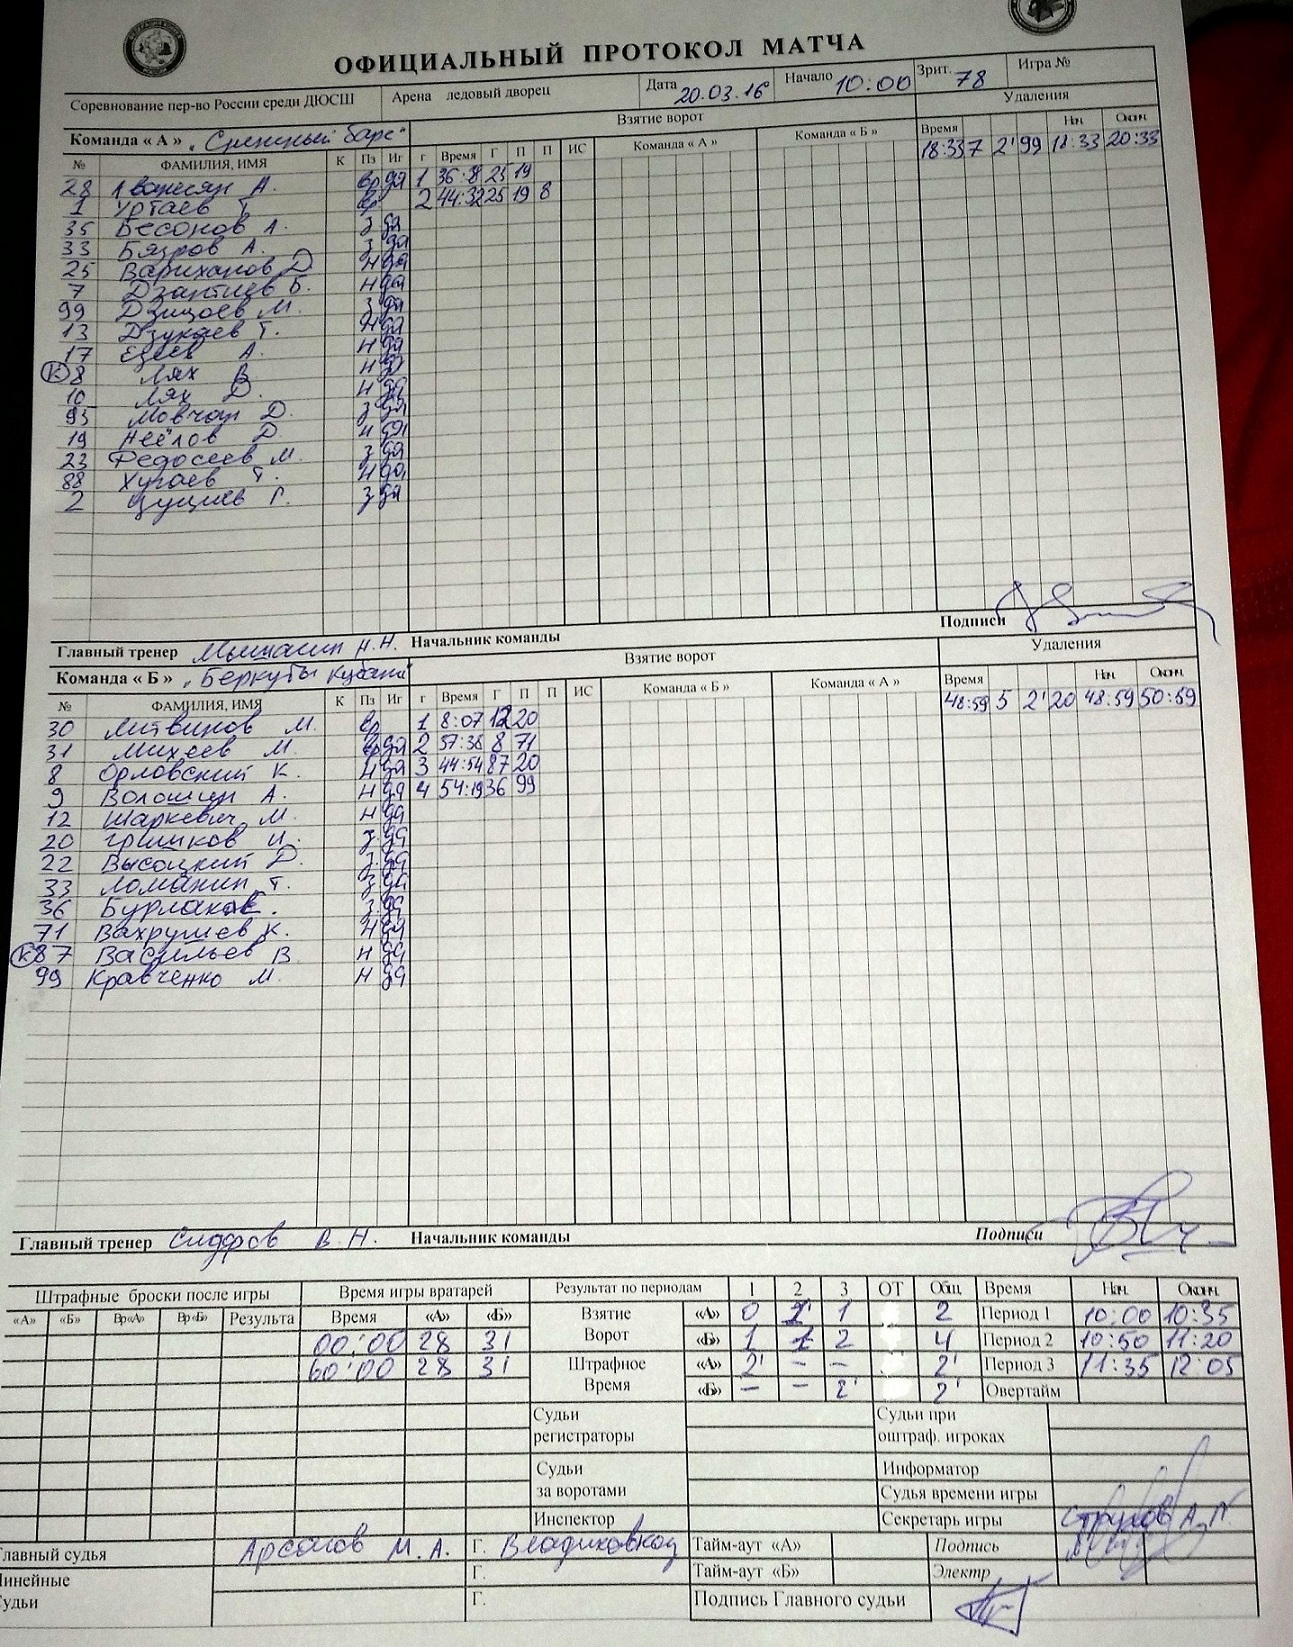 ОФИЦИАЛЬНЫЙ ПРОТОКОЛ МАТЧА
Соревнование пер-во России среди ДЮСШ Арена ледовый дворец Дата 20.03.16 Начало 10:00 Зрит. 78 Игра №
Команда « А » „Снежный барс" Взятие ворот Удаления
№ ФАМИЛИЯ, ИМЯ К Пз Иг г Время Г П П ИС Команда « А » Команда « Б » Время Нач Оконч
18:33 7 2' 99 18:33 20:33
28 А. вр да 1 36:8 25 19
1 Уртаев Т. вр 2 44:32 25 19 8
35 Бесонов А. з да
33 Бязров А. з да
25 Вариханов Д н да
7 Дзантиев Б. н да
99 Дзицоев М. з да
13 Дзукаев Т. н да
17 Езеев А. н да
К 8 Лях В н да
10 Лях Д. н да
93 Мовчан Д. з да
19 Неёлов Д н да
23 Федосеев М. з да
88 Хугаев Т. н да
2 Цуциев Г. з да
Главный тренер Н.Н. Начальник команды Подписи
Команда « Б » „Беркуты Кубани" Взятие ворот Удаления
№ ФАМИЛИЯ, ИМЯ К Пз Иг г Время Г П П ИС Команда « Б » Команда « А » Время Нач Оконч
48:59 5 2' 20 48:59 50:59
30 Литвинов М. вр 1 8:07 12 20
31 Михеев М. вр да 2 57:38 8 71
8 Орловский К. н да 3 44:54 87 20
9 Волошин А. н да 4 54:19 36 99
12 Шаркевич М. н да
20 Гришков И. з да
22 Высоцкий Д. з да
33 Ломакин Т. з да
36 Бурлаков з да
71 Вахрушев К. н да
К 87 Васильев В н да
99 Кравченко М. н да
Главный тренер Сидоров В.Н. Начальник команды Подписи
Штрафные броски после игры Время игры вратарей Результат по периодам 1 2 3 ОТ Общ Время Нач. Оконч
«А» «Б» Вр«А» Вр«Б» Результа Время «А» «Б» Взятие «А» 0 1 1 2 Период 1 10:00 10:35
00:00 28 31 Ворот «Б» 1 1 2 4 Период 2 10:50 11:20
60:00 28 31 Штрафное «А» 2' – – 2' Период 3 11:35 12:05
Время «Б» – – 2' 2' Овертайм
Судьи регистраторы Судьи при оштраф. игроках
Судьи за воротами Информатор
Судья времени игры
Инспектор Секретарь игры
Главный судья М.А. Г. Владикавказ Тайм-аут «А» Подпись
Линейные Г. Тайм-аут «Б» Электр
Судьи Г. Подпись Главного судьи